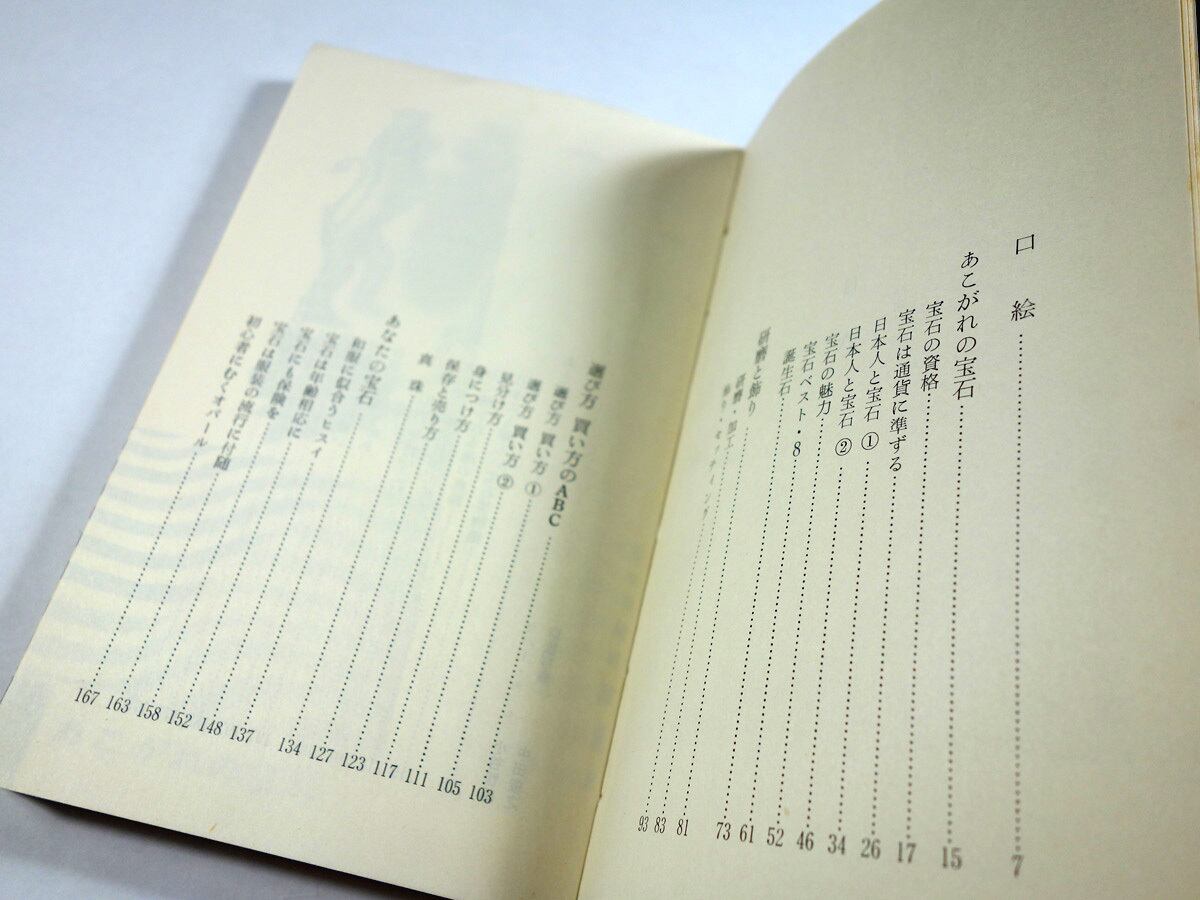 口絵……7
あこがれの宝石……15
宝石の資格……17
宝石は通貨に準ずる……26
日本人と宝石 ①……34
日本人と宝石 ②……46
宝石の魅力……52
宝石ベスト・8……61
誕生石……73
研磨と飾り……81
研磨・加工……83
飾り・セッティング……93
選び方 買い方のABC……103
選び方 買い方 ①……105
選び方 買い方 ②……111
見分け方……117
身につけ方……123
保存と売り方……127
真珠……134
あなたの宝石……137
和服に似合うヒスイ……148
宝石は年齢相応に……152
宝石にも保険を……158
宝石は服装の流行に付随……163
初心者にむくオパール……167